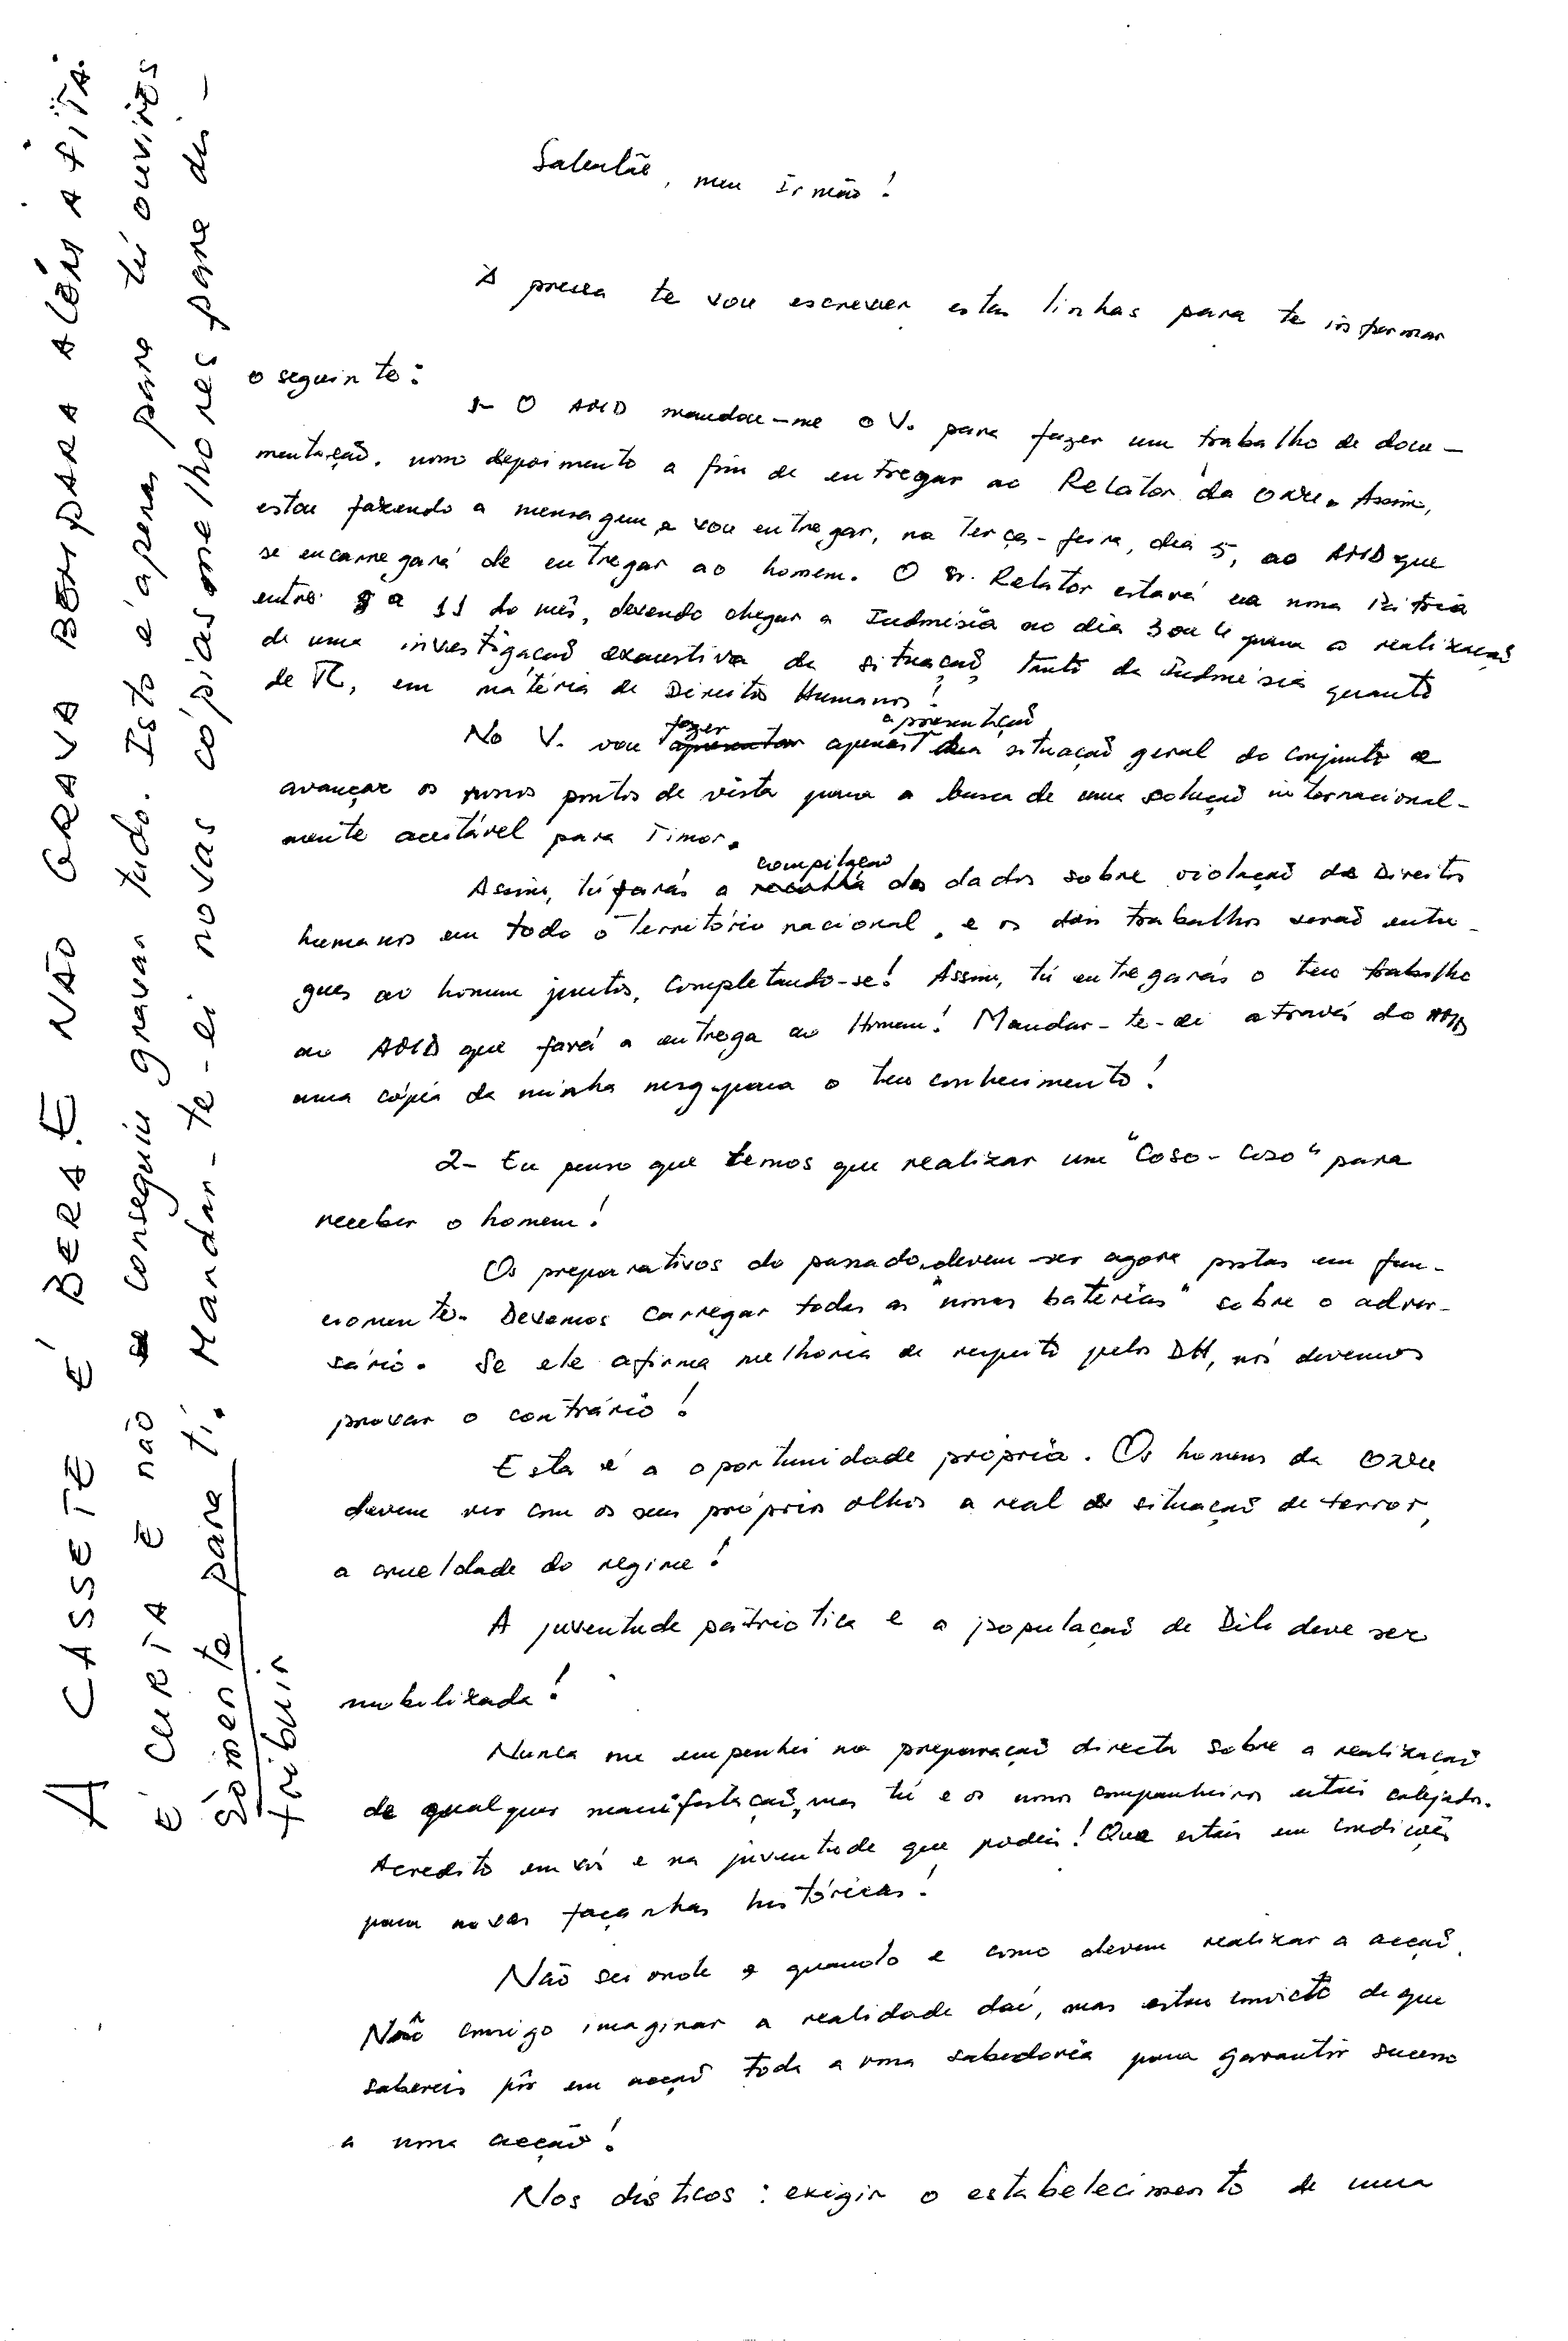 Saleulãe, meu Irmão!
À pressa te vou escrever estas linhas para te informar
o seguinte:
1- O AMD mandou-me o V. para fazer um trabalho de docu-
mentação, nosso depoimento a fim de entregar ao Relator da ONU. Assim,
estou fazendo a mensagem e vou entregar, na terça-feira, dia 5, ao AMD que
se encarregará de entregar ao homem. O Sr. Relator estará na nossa Pátria
entre 8 a 11 do mês, devendo chegar a Indonésia no dia 3 ou 4 para a realização
de uma investigação exaustiva da situação, tanto da Indonésia quanto
de TL, em matéria de Direitos Humanos!
No V. vou fazer apenas apresentação da situação geral do conjunto e
avançar os nossos pontos de vista para a busca de uma solução internacional-
mente aceitável para Timor.
Assim, tú farás a compilação dos dados sobre violação de Direitos
humanos em todo o território nacional, e os dois trabalhos serão entre-
gues ao homem juntos, completando-se! Assim, tú entregarás o teu trabalho
ao AMD que fará a entrega ao Homem! Mandar-te-ei através do AMD
uma cópia da minha msg. para o teu conhecimento!
2- Eu penso que temos que realizar um "Coso-Coso" para
receber o homem!
Os preparativos do passado, devem ser agora postos em fun-
cionamento. Devemos carregar todas as "nossas baterias" sobre o adver-
sário. Se ele afirma melhoria de respeito pelos DH, nós devemos
provar o contrário!
Esta é a oportunidade própria. Os homens da ONU
devem ver com os seus próprios olhos a real de situação de terror,
a crueldade do regime!
A juventude patriótica e a população de Dili deve ser
mobilizada!
Nunca me empenhei na preparação directa sobre a realização
de qualquer manifestação, mas tú e os nossos companheiros estais calejados.
Acredito em vós e na juventude que podeis! Que estais em condições
para novas façanhas históricas!
Não sei onde e quando e como devem realizar a acção.
Não consigo imaginar a realidade daí, mas estou convicto de que
sabereis pôr em acção toda a vossa sabedoria para garantir sucesso
a vossa acção!
Nos dísticos: exigir o estabelecimento de uma
A CASSETE É BERA. E NÃO GRAVA BEM PARA ALÉM A FITA
É CURTA E não se conseguiu gravar tudo. Isto é apenas para tú ouvires
sòmente para ti. Mandar-te-ei novas cópias melhores para dis-
tribuir